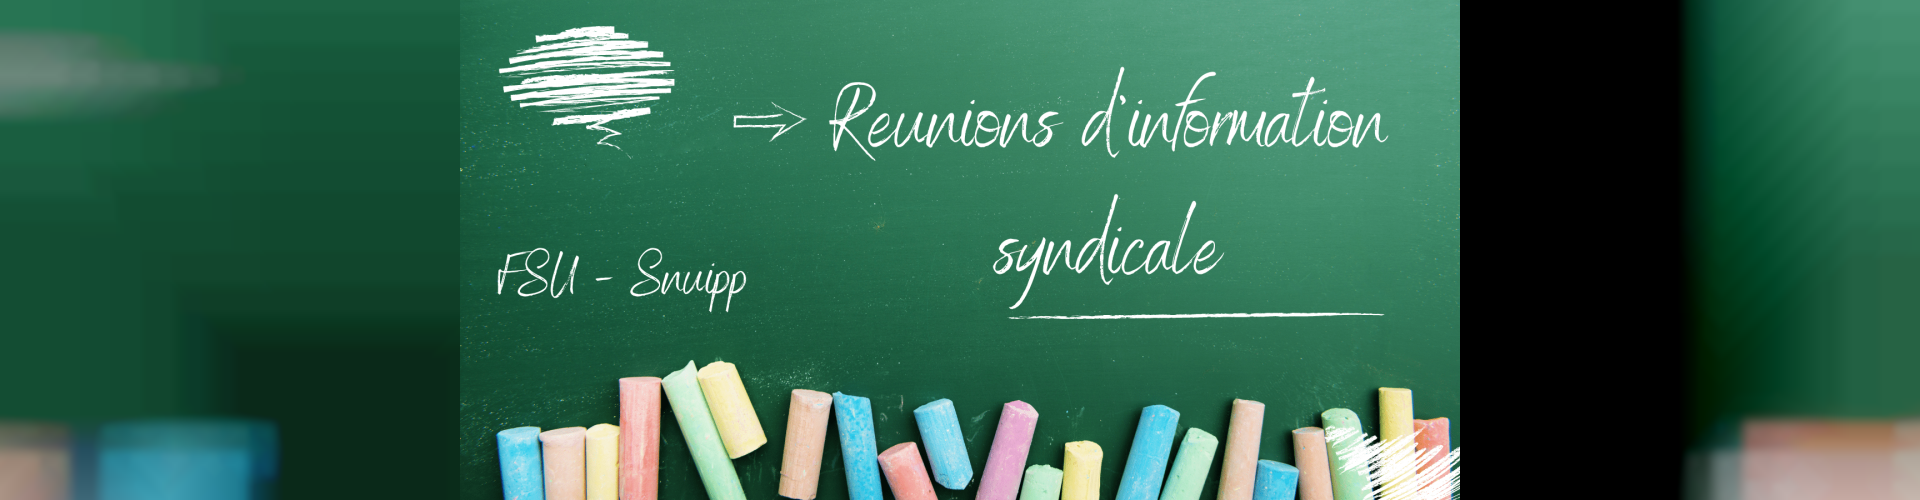 Reunions d'information
syndicale
FSU - Snuipp